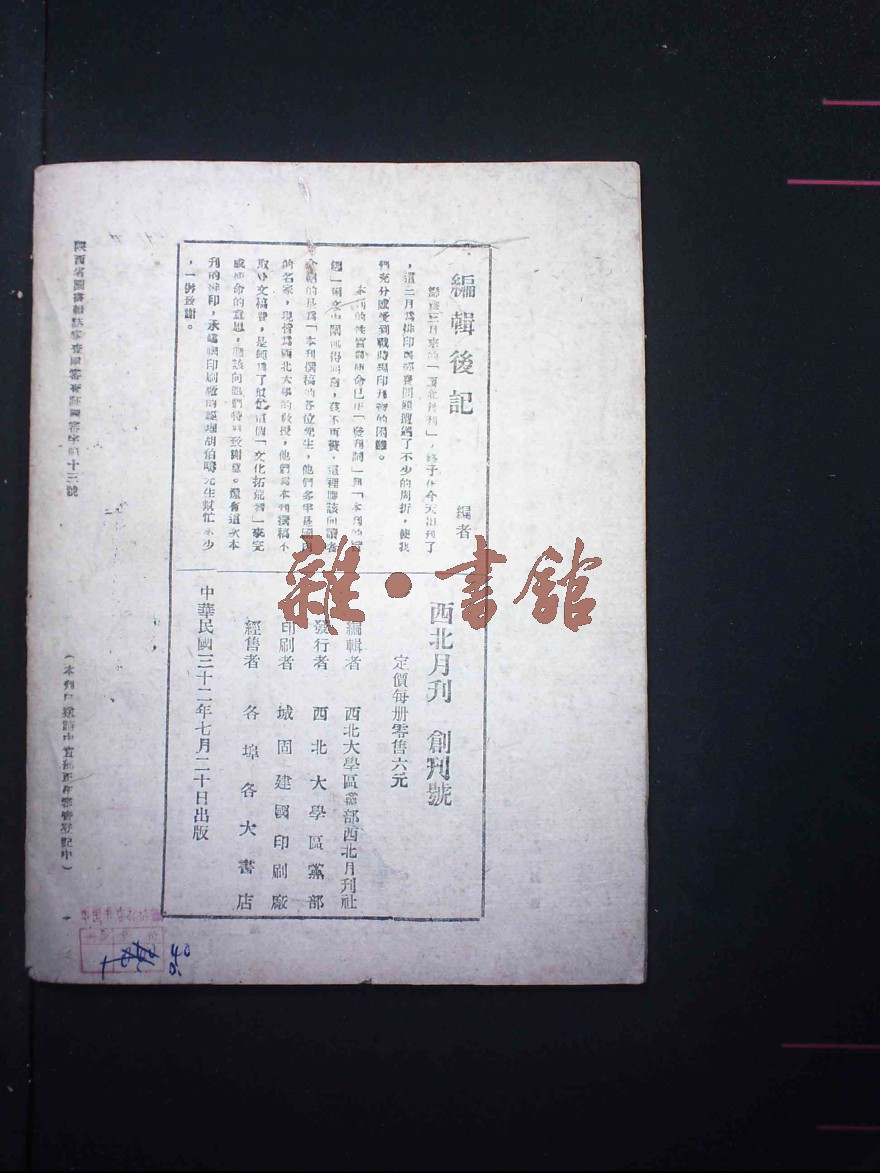 編輯後記
編者
三月來的「西北月刊」，終于在今天出刊了
，這三月為排印與經費問題遭遇了不少的周折，使我
們充分感受到戰時編印刊物的困難。
本刊的性質與使命已在「發刊詞」與「本刊的旨
」兩文中闡述得詳盡，茲不再贅。這裡應該向讀者
介紹的是為「本刊撰稿的各位先生，他們多半是國內
的名家，現皆為西北大學的教授，他們為本刊撰稿不
取分文稿費，是純為了
成使命的意思，應該向他們特別致謝意。還有這次本
刊的排印，承建國印刷廠的經理胡伯
，一併致謝。
西北月刊 創刊號
定價每册零售六元
編輯者 西北大學區黨部西北月刊社
發行者 西北大學區黨部
印刷者 城固建國印刷廠
經售者 各埠各大書店
中華民國三十二年七月二十日出版
陝西省圖書雜誌審查處審查證圖審字第十三號
雜·書館